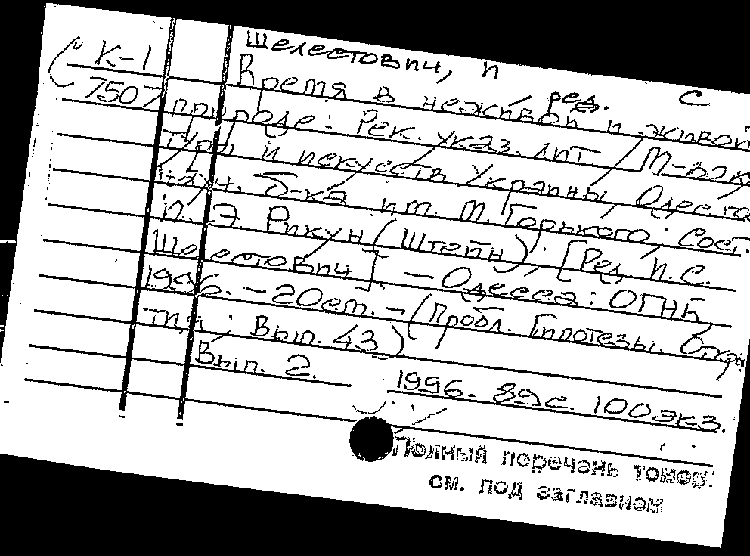 К-1
7507
Шелестович, И С
ред.
Время в неживой и живой
природе: Рек. указ. лит / М-во к
туры и искусств Украины, Одесска
науч. б-ка им. М Горького; Сост.
И. Э. Рикун (Штейн); [Ред И. С.
Шелестович]. - Одесса: ОГНБ
1996. - 20см. - (Пробл. Гипотезы. Откры
тия; Вып. 43)
Вып. 2. 1996. 89с. 100экз.
Полный перечень томов
см. под заглавием